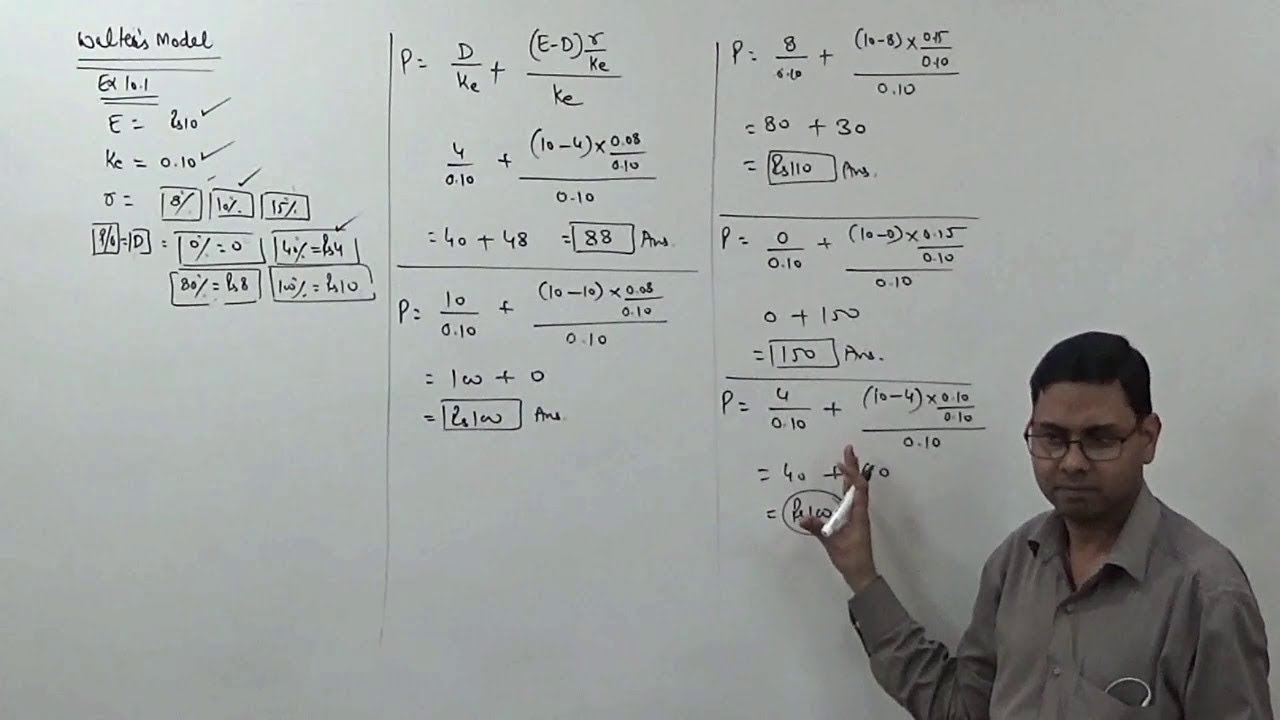 Walter's Model
Ex 10.1
E = Rs10 ✓
Ke = 0.10 ✓
r = 8% 10% ✓ 15%
P/O = D = 0% = 0 40% = Rs4 ✓
80% = Rs8 100% = Rs10
P = D/Ke + ((E-D) r/Ke)/Ke
4/0.10 + ((10-4) × 0.08/0.10)/0.10
= 40 + 48 = 88 Ans.
P = 10/0.10 + ((10-10) × 0.08/0.10)/0.10
= 100 + 0
= Rs100 Ans.
P = 8/0.10 + ((10-8) × 0.15/0.10)/0.10
= 80 + 30
= Rs110 Ans.
P = 0/0.10 + ((10-0) × 0.15/0.10)/0.10
0 + 150
= 150 Ans.
P = 4/0.10 + ((10-4) × 0.10/0.10)/0.10
= 40 +
= Rs100